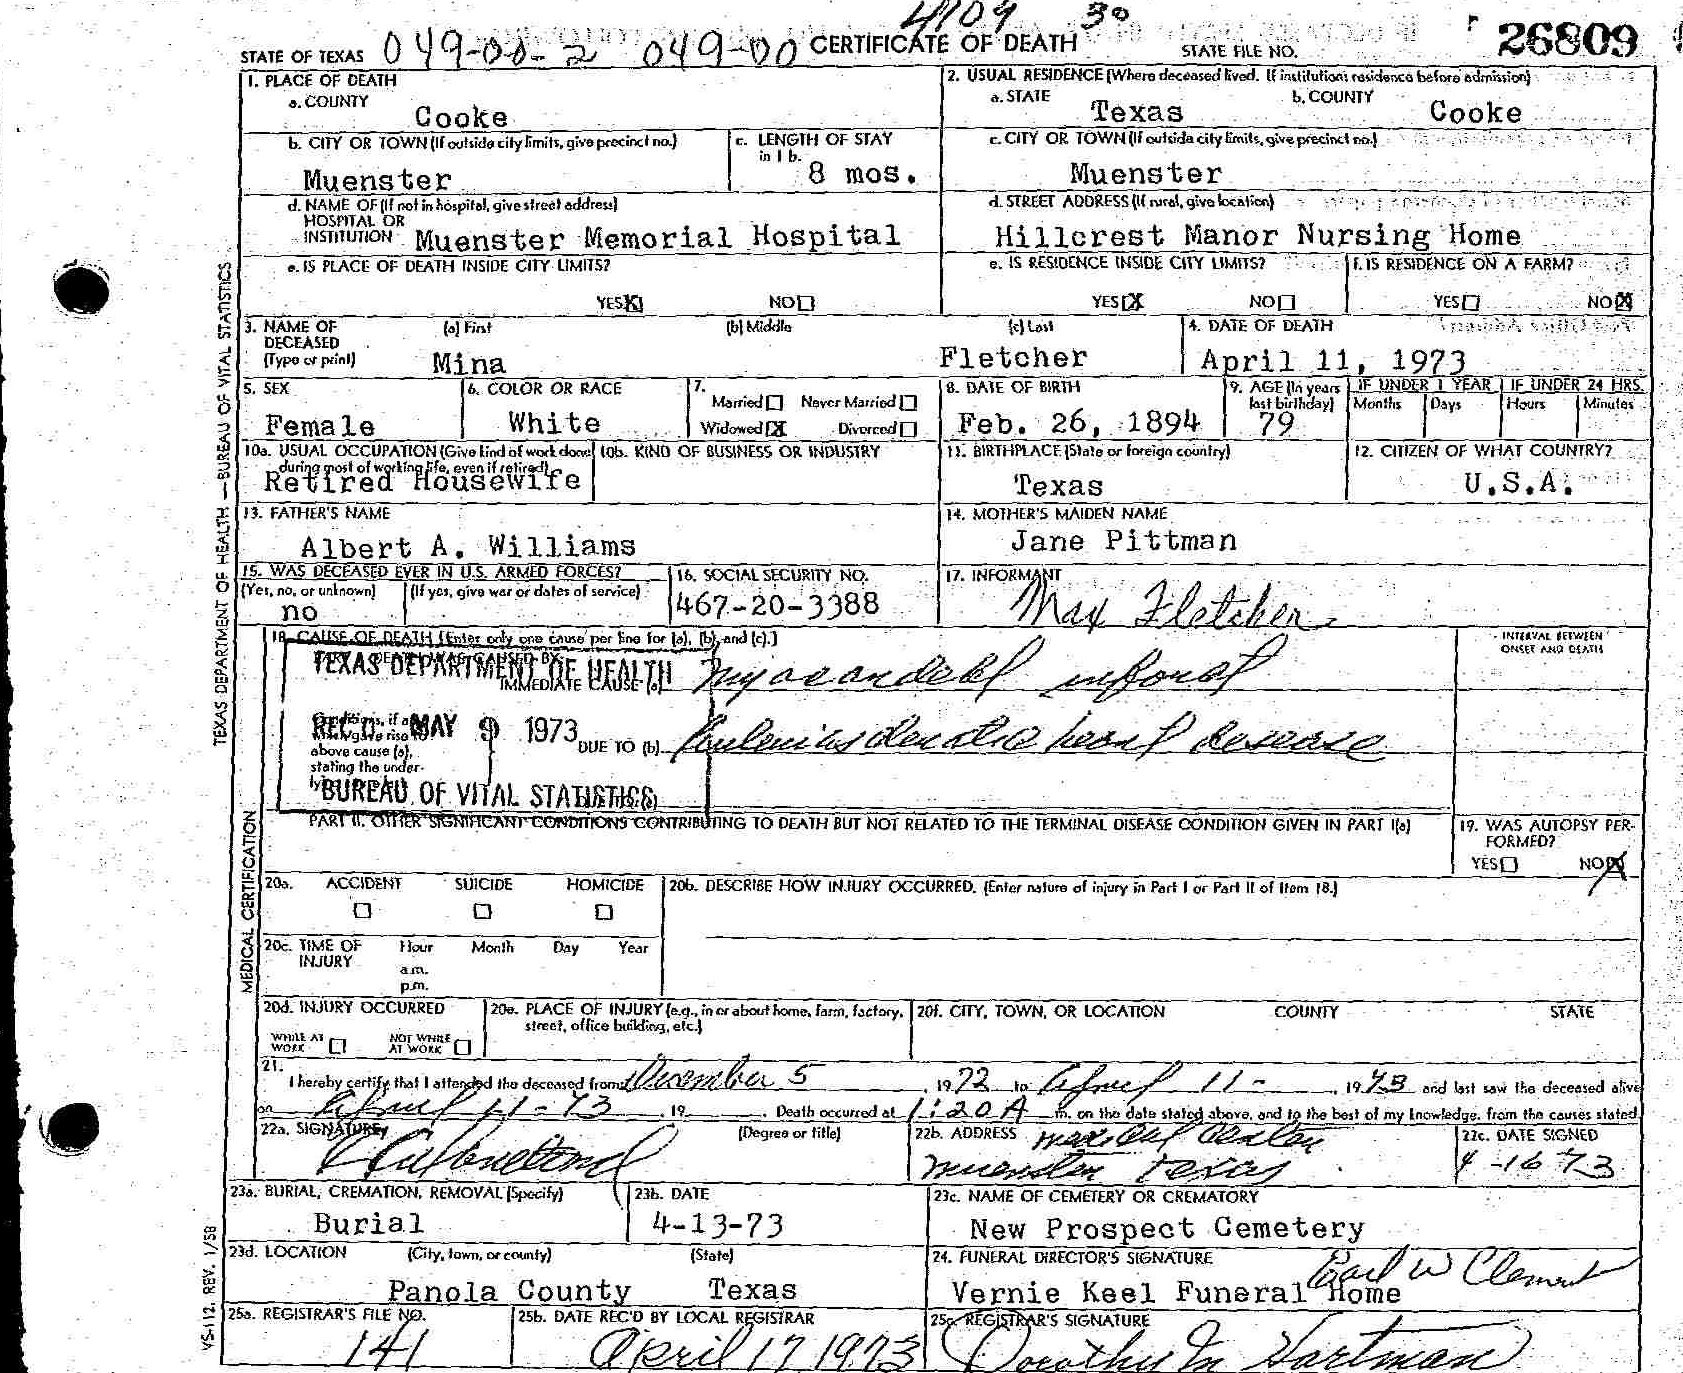 4109 30
STATE OF TEXAS 049-00-2 049-00 CERTIFICATE OF DEATH STATE FILE NO. 26809
1. PLACE OF DEATH
a. COUNTY
Cooke
2. USUAL RESIDENCE (Where deceased lived. If institution: residence before admission)
a. STATE Texas b. COUNTY Cooke
b. CITY OR TOWN (If outside city limits, give precinct no.)
Muenster
c. LENGTH OF STAY
in 1 b.
8 mos.
c. CITY OR TOWN (If outside city limits, give precinct no.)
Muenster
d. NAME OF (If not in hospital, give street address)
HOSPITAL OR
INSTITUTION Muenster Memorial Hospital
d. STREET ADDRESS (If rural, give location)
Hillcrest Manor Nursing Home
e. IS PLACE OF DEATH INSIDE CITY LIMITS?
YES X NO
e. IS RESIDENCE INSIDE CITY LIMITS?
YES X NO
f. IS RESIDENCE ON A FARM?
YES NO X
3. NAME OF
DECEASED
(Type or print)
(a) First (b) Middle (c) Last
Mina Fletcher
4. DATE OF DEATH
April 11, 1973
5. SEX
Female
6. COLOR OR RACE
White
7.
Married Never Married
Widowed X Divorced
8. DATE OF BIRTH
Feb. 26, 1894
9. AGE (In years
last birthday)
79
IF UNDER 1 YEAR IF UNDER 24 HRS.
Months Days Hours Minutes
10a. USUAL OCCUPATION (Give kind of work done
during most of working life, even if retired)
Retired Housewife
10b. KIND OF BUSINESS OR INDUSTRY
11. BIRTHPLACE (State or foreign country)
Texas
12. CITIZEN OF WHAT COUNTRY?
U.S.A.
13. FATHER'S NAME
Albert A. Williams
14. MOTHER'S MAIDEN NAME
Jane Pittman
15. WAS DECEASED EVER IN U.S. ARMED FORCES?
(Yes, no, or unknown) (If yes, give war or dates of service)
no
16. SOCIAL SECURITY NO.
467-20-3388
17. INFORMANT
Max Fletcher
18. CAUSE OF DEATH (Enter only one cause per line for (a), (b), and (c).)
INTERVAL BETWEEN
ONSET AND DEATH
TEXAS DEPARTMENT OF HEALTH
IMMEDIATE CAUSE (a)
REC'D MAY 9 1973
above cause (a),
stating the under-
DUE TO (b) heart disease
BUREAU OF VITAL STATISTICS
PART II. OTHER SIGNIFICANT CONDITIONS CONTRIBUTING TO DEATH BUT NOT RELATED TO THE TERMINAL DISEASE CONDITION GIVEN IN PART I(a)
19. WAS AUTOPSY PER-
FORMED?
YES NO X
20a. ACCIDENT SUICIDE HOMICIDE
20b. DESCRIBE HOW INJURY OCCURRED. (Enter nature of injury in Part I or Part II of Item 18.)
20c. TIME OF
INJURY
Hour Month Day Year
a.m.
p.m.
20d. INJURY OCCURRED
WHILE AT
WORK
NOT WHILE
AT WORK
20e. PLACE OF INJURY (e.g., in or about home, farm, factory,
street, office building, etc.)
20f. CITY, TOWN, OR LOCATION COUNTY STATE
21.
I hereby certify that I attended the deceased from December 5, 1972 to April 11-, 1973 and last saw the deceased alive
on April 11-73, 19 . Death occurred at 1:20 A m. on the date stated above, and to the best of my knowledge, from the causes stated.
22a. SIGNATURE (Degree or title)
22b. ADDRESS
Muenster Texas
22c. DATE SIGNED
4-16 73
23a. BURIAL, CREMATION, REMOVAL (Specify)
Burial
23b. DATE
4-13-73
23c. NAME OF CEMETERY OR CREMATORY
New Prospect Cemetery
23d. LOCATION (City, town, or county) (State)
Panola County Texas
24. FUNERAL DIRECTOR'S SIGNATURE
W Clement
Vernie Keel Funeral Home
25a. REGISTRAR'S FILE NO.
141
25b. DATE REC'D BY LOCAL REGISTRAR
April 17 1973
25c. REGISTRAR'S SIGNATURE
Dorothy M Hartman
TEXAS DEPARTMENT OF HEALTH — BUREAU OF VITAL STATISTICS
MEDICAL CERTIFICATION
VS-112 REV. 1/58